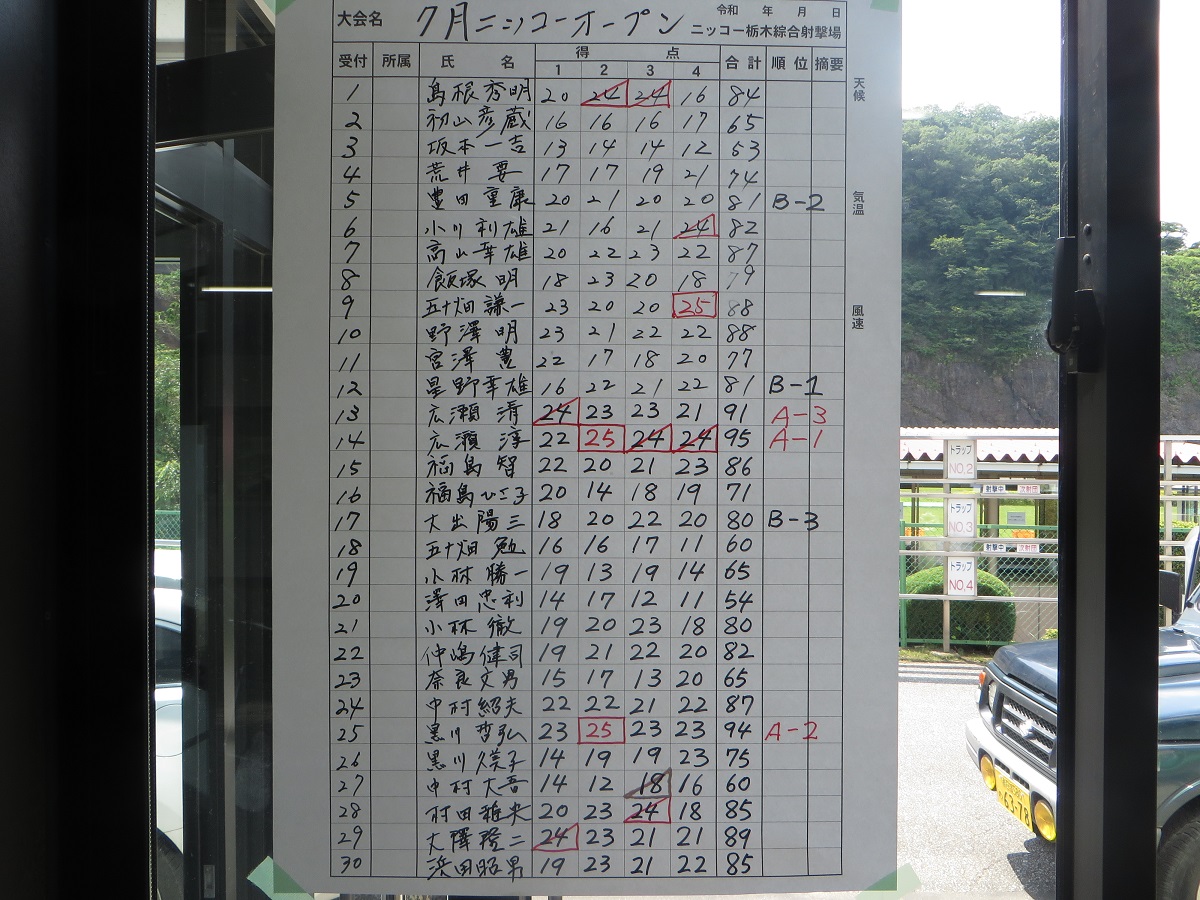 大会名 7月ニッコーオープン 令和 年 月 日
ニッコー栃木綜合射撃場
受付 所属 氏名 得点 合計 順位 摘要
1 2 3 4
1 島根秀明 20 24 24 16 84
2 初山彦蔵 16 16 16 17 65
3 坂本一吉 13 14 14 12 53
4 荒井要 17 17 19 21 74
5 豊田重廉 20 21 20 20 81 B-2
6 小川利雄 21 16 21 24 82
7 高山幸雄 20 22 23 22 87
8 飯塚明 18 23 20 18 79
9 五十畑謙一 23 20 20 25 88
10 野澤明 23 21 22 22 88
11 宮澤豊 22 17 18 20 77
12 星野幸雄 16 22 21 22 81 B-1
13 広瀬清 24 23 23 21 91 A-3
14 広瀬淳 22 25 24 24 95 A-1
15 福島智 22 20 21 23 86
16 福島ひさ子 20 14 18 19 71
17 大出陽三 18 20 22 20 80 B-3
18 五十畑勉 16 16 17 11 60
19 小林勝一 19 13 19 14 65
20 澤田忠利 14 17 12 11 54
21 小林徹 19 20 23 18 80
22 仲嶋健司 19 21 22 20 82
23 奈良文男 15 17 13 20 65
24 中村紹夫 22 22 21 22 87
25 黒川哲弘 23 25 23 23 94 A-2
26 黒川久美子 14 19 19 23 75
27 中村大吾 14 12 18 16 60
28 村田雅央 20 23 24 18 85
29 大澤隆二 24 23 21 21 89
30 浜田昭男 19 23 21 22 85
天候
気温
風速
トラップ
NO.2
射撃中
トラップ
NO.3
射撃中
トラップ
NO.4
63-78